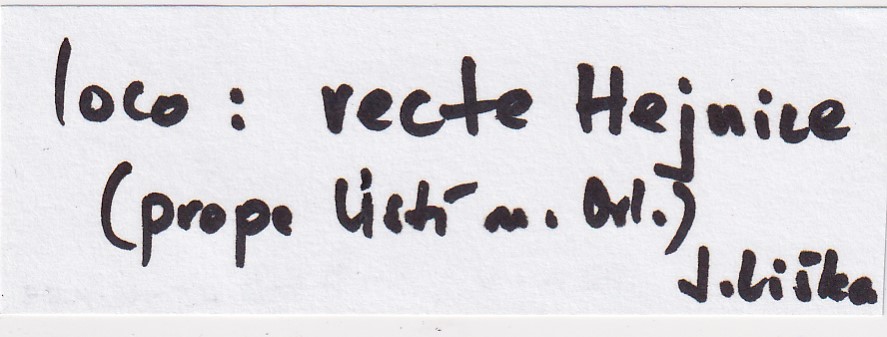 loco: recte Hejnice
(prope Ústí n. Orl.)
J. Liška